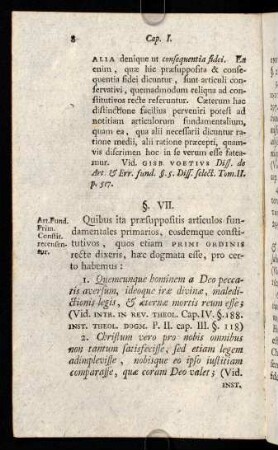 8 Cap. I.
ALIA denique ut consequentia fidei. Ea
enim, quæ hic præsupposita & conse-
quentia fidei dicuntur, sunt articuli con-
servativi, quemadmodum reliqua ad con-
stitutivos recte referuntur. Cæterum hac
distinctione facilius perveniri potest ad
notitiam articulorum fundamentalium,
quam ea, qua alii necessarii dicuntur ra-
tione medii, alii ratione præcepti, quam-
vis discrimen hoc in se verum esse fatea-
mur. Vid. GISB. VOETIVS Diss. de
Art. & Err. fund. §. 5. Diss. select. Tom. II.
p. 517.
§. VII.
Art. Fund.
Prim.
Constit.
recensen-
tur.
Quibus ita præsuppositis articulos fun-
damentales primarios, eosdemque consti-
tutivos, quos etiam PRIMI ORDINIS
recte dixeris, hæc dogmata esse, pro cer-
to habemus:
1. Quemcunque hominem a Deo pecca-
tis aversum, ideoque iræ divinæ, maledi-
ctionis legis, & æternæ mortis reum esse;
(Vid. INTR. IN REV. THEOL. Cap. IV. §. 188.
INST. THEOL. DOGM. P. II. cap. III. §. 118)
2. Christum vero pro nobis omnibus
non tantum satisfecisse, sed etiam legem
adimplevisse, nobisque eo ipso iustitiam
comparasse, quæ coram Deo valet; (Vid.
INST.